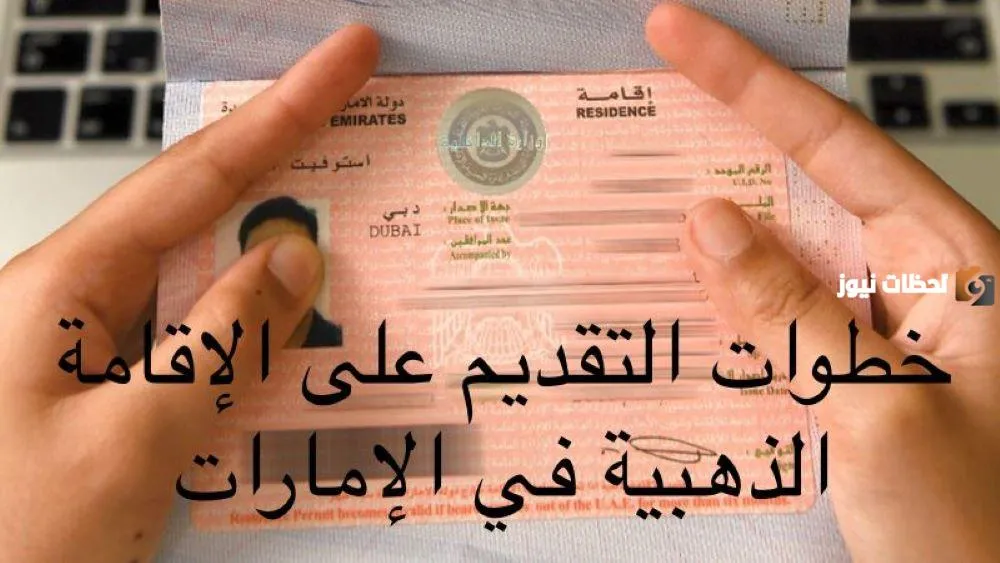 إقامة
RESIDENCE
دولة الامار
EMIRATES
وزارة الداخلية
استوفيت
الرقم الموحد :
U.I.D. No
File
دبي
DUBAI
جهة الاصدار :
Place of Issue
عدد المرافقين :
Accompanied by
لحظات نيوز
خطوات التقديم على الإقامة
Issue Date
الذهبية في الإمارات
Permit becomes valid if out of the U.A.E. for more than six